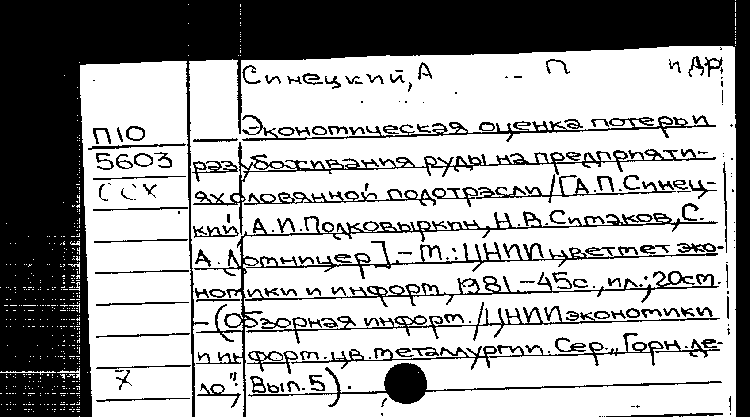 Синецкий, А П и др
Экономическая оценка потерь и
П10
5603 разубоживания руды на предприяти-
ССХ ях оловянной подотрасли / [А.П.Синец-
кий, А.И.Полковыркин, Н.В.Ситаков, С.
А. Лотницер]. - М.: ЦНИИцветмет эко-
номики и информ, 1981. - 45с., ил.; 20см.
- (Обзорная информ. / ЦНИИэкономики
и информ. цв. металлургии. Сер. „Горн. де-
7 ло"; Вып. 5).